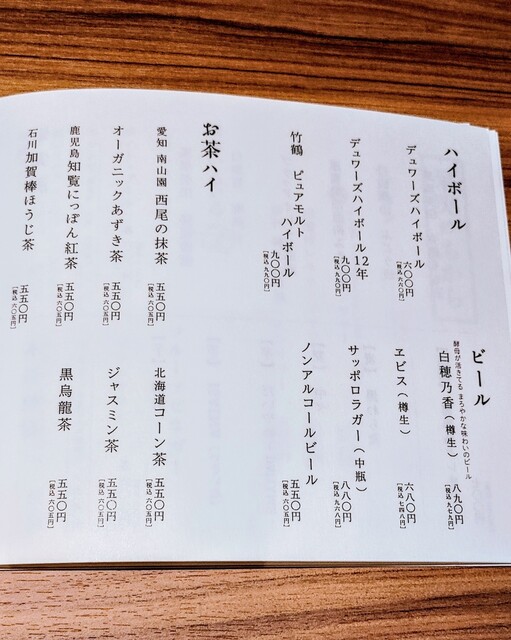 ハイボール
デュワーズハイボール
六〇〇円
[税込 六六〇円]
デュワーズハイボール12年
九〇〇円
[税込 九九〇円]
竹鶴 ピュアモルト
ハイボール
九〇〇円
[税込 九九〇円]
お茶ハイ
愛知 南山園 西尾の抹茶
五五〇円
[税込 六〇五円]
オーガニックあずき茶
五五〇円
[税込 六〇五円]
鹿児島 知覧にっぽん紅茶
五五〇円
[税込 六〇五円]
石川 加賀棒ほうじ茶
五五〇円
[税込 六〇五円]
ビール
酵母が活きてる まろやかな味わいのビール
白穂乃香(樽生)
八九〇円
[税込 九七九円]
ヱビス(樽生)
六八〇円
[税込 七四八円]
サッポロラガー(中瓶)
八八〇円
[税込 九六八円]
ノンアルコールビール
五五〇円
[税込 六〇五円]
北海道コーン茶
五五〇円
[税込 六〇五円]
ジャスミン茶
五五〇円
[税込 六〇五円]
黒烏龍茶
五五〇円
[税込 六〇五円]